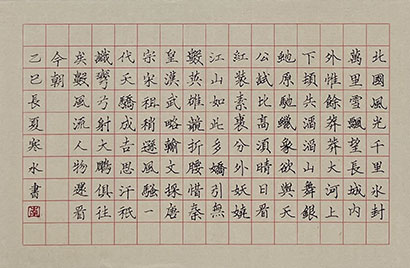 北國風光千里氷封
萬里雪飄望長城内
外惟餘莽莽大河上
下頓失滔滔山舞銀
蛇原馳蠟象欲與天
公試比高須晴日看
紅裝素裹分外妖嬈
江山如此多嬌引無
數英雄競折腰惜秦
皇漢武略輸文採唐
宗宋祖稍遜風騷一
代天驕成吉思汗祇
識彎弓射大鵰俱往
矣數風流人物還看
今朝
乙巳長夏寒水書